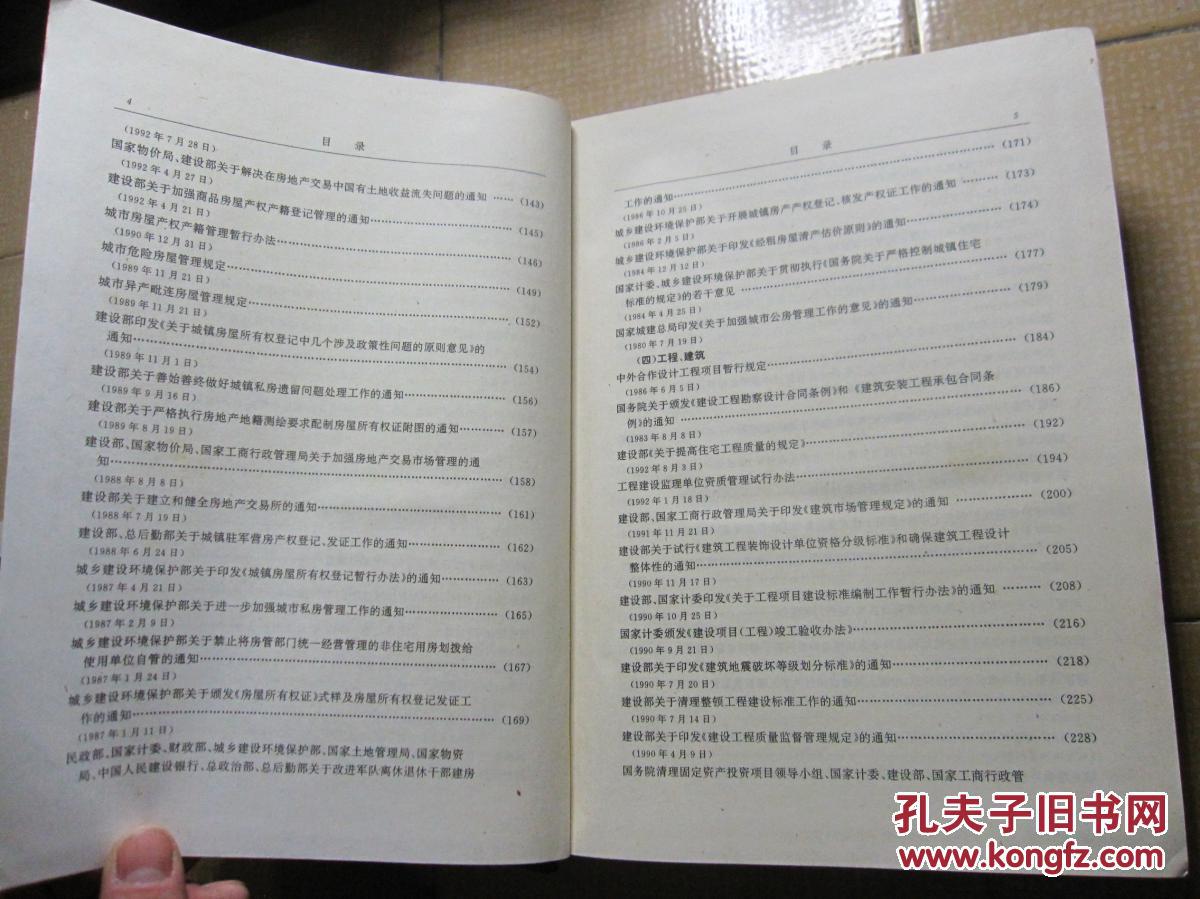 4
目 录
(1992年7月28日)
国家物价局、建设部关于解决在房地产交易中国有土地收益流失问题的通知……(143)
(1992年4月27日)
建设部关于加强商品房屋产权产籍登记管理的通知……(145)
(1992年4月21日)
城市房屋产权产籍管理暂行办法……(146)
(1990年12月31日)
城市危险房屋管理规定……(149)
(1989年11月21日)
城市异产毗连房屋管理规定……(152)
(1989年11月21日)
建设部印发《关于城镇房屋所有权登记中几个涉及政策性问题的原则意见》的
通知……(154)
(1989年11月1日)
建设部关于善始善终做好城镇私房遗留问题处理工作的通知……(156)
(1989年9月16日)
建设部关于严格执行房地产地籍测绘要求配制房屋所有权证附图的通知……(157)
(1989年8月19日)
建设部、国家物价局、国家工商行政管理局关于加强房地产交易市场管理的通
知……(158)
(1988年8月8日)
建设部关于建立和健全房地产交易所的通知……(161)
(1988年7月19日)
建设部、总后勤部关于城镇驻军营房产权登记、发证工作的通知……(162)
(1988年6月24日)
城乡建设环境保护部关于印发《城镇房屋所有权登记暂行办法》的通知……(163)
(1987年4月21日)
城乡建设环境保护部关于进一步加强城市私房管理工作的通知……(165)
(1987年2月9日)
城乡建设环境保护部关于禁止将房管部门统一经营管理的非住宅用房划拨给
使用单位自管的通知……(167)
(1987年1月24日)
城乡建设环境保护部关于颁发《房屋所有权证》式样及房屋所有权登记发证工
作的通知……(169)
(1987年1月11日)
民政部、国家计委、财政部、城乡建设环境保护部、国家土地管理局、国家物资
局、中国人民建设银行、总政治部、总后勤部关于改进军队离休退休干部建房
5
目 录
工作的通知……(171)
(1986年10月25日)
城乡建设环境保护部关于开展城镇房产产权登记、核发产权证工作的通知……(173)
(1986年2月5日)
城乡建设环境保护部关于印发《经租房屋清产估价原则》的通知……(174)
(1984年12月12日)
国家计委、城乡建设环境保护部关于贯彻执行《国务院关于严格控制城镇住宅
标准的规定》的若干意见……(177)
(1984年4月25日)
国家城建总局印发《关于加强城市公房管理工作的意见》的通知……(179)
(1980年7月19日)
(四)工程、建筑
中外合作设计工程项目暂行规定……(184)
(1986年6月5日)
国务院关于颁发《建设工程勘察设计合同条例》和《建筑安装工程承包合同条
例》的通知……(186)
(1983年8月8日)
建设部《关于提高住宅工程质量的规定》……(192)
(1992年8月3日)
工程建设监理单位资质管理试行办法……(194)
(1992年1月18日)
建设部、国家工商行政管理局关于印发《建筑市场管理规定》的通知……(200)
(1991年11月21日)
建设部关于试行《建筑工程装饰设计单位资格分级标准》和确保建筑工程设计
整体性的通知……(205)
(1990年11月17日)
建设部、国家计委印发《关于工程项目建设标准编制工作暂行办法》的通知……(208)
(1990年10月25日)
国家计委颁发《建设项目(工程)竣工验收办法》……(216)
(1990年9月21日)
建设部关于印发《建筑地震破坏等级划分标准》的通知……(218)
(1990年7月20日)
建设部关于清理整顿工程建设标准工作的通知……(225)
(1990年7月14日)
建设部关于印发《建设工程质量监督管理规定》的通知……(228)
(1990年4月9日)
国务院清理固定资产投资项目领导小组、国家计委、建设部、国家工商行政管
孔夫子旧书网
www.kongfz.com